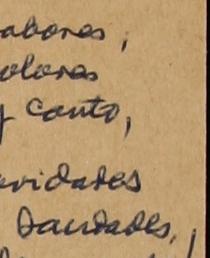 abores,
olores
y canto,
avidades
Saudades,